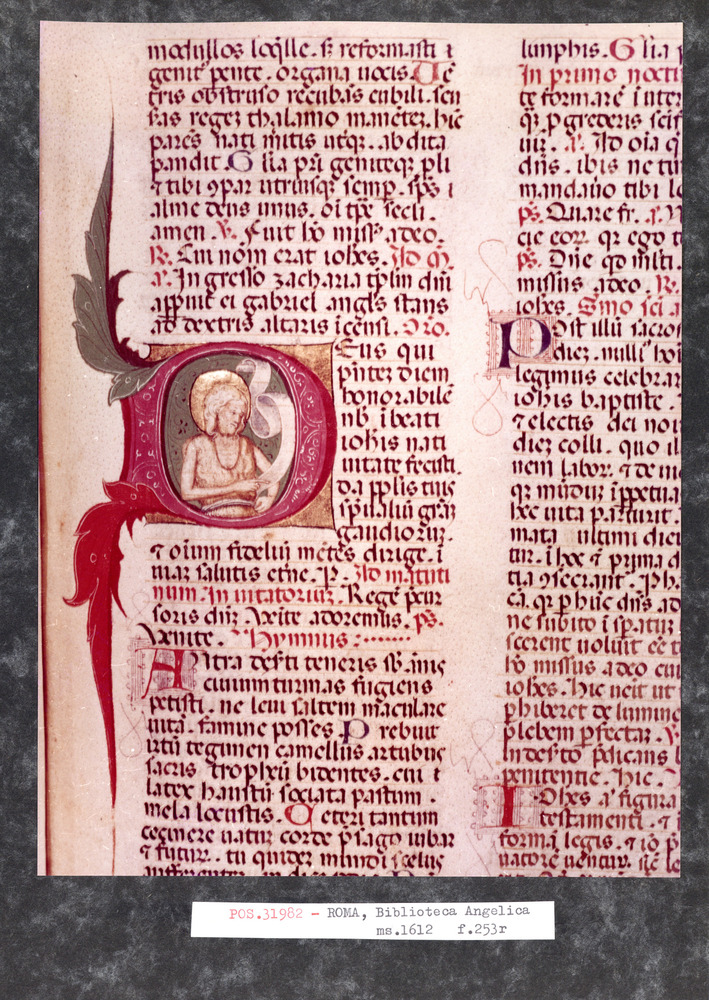 modullos loq̄lle. s̄z reformasti ⁊
genit̄ pente. organa uocis. Ue
tris obstruso recubās cubili. sen
ſas regez thalamo manētez. hic
parēs nati mitis utq;. abdita
pandit G lia p̄ri geniteq; p̄li
⁊ tibi ꝯpar utriusq; semp̄. sp̄s ⁊
alme deus unus. oī tp̄e secli.
amen. V. Fuit hō miss᷒ a deo.
R. Cui nom̄ erat ioh̄es. Ad M.
a. Ingresso zacharia tp̄lm dn̄i
appuit ei gabriel angls stans
ad dextris altaris īcensi. Oro.
Deus qui
p̄ntez diem
honorabilē
nb̄ ī beati
ioh̄is nati
uitate fecisti.
da pplis tuis
sp̄ualiū grāz
gaudioruz.
⁊ oīum fideliū mētes dirige. ī
uiaz salutis etn̄e. P. Ad matuti
num. Inuitatoriuz. Regē p̄cur
soris dn̄z. Venite adoremus. ps.
Venite. Hymnus:
Antra deserti teneris sb̄. ānis
ciuium turmas fugiens
petisti. ne leui saltem maculare
uitā. famine posses. Prebuit
irtū tegimen camellus artubus
sacris. trophiū bidentes. cui ⁊
latex haustū sociata pastum.
mela locustis. Ceteri tantum
cecinere uatuz corde p̄sago iubar
⁊ futuꝝ. tu quidez mundi scelus
lymphis. G lia p
In primo noctu
te formarē ī uter
q̄z p̄grederis
uiz. a. Ad oīa q̄
dn̄s. ibis ne tim
mandauo tibi lo
ps. Quare fr. a. N
cie eoꝝ. qz ego t
ps. Dn̄e qd multi.
missus a deo. R.
ioh̄es. Smo sci a
Post illū sacros
diez. nulli
legimus celebrar
ioh̄is baptiste.
⁊ electis dei
diez colli. quo il
nem laboꝝ. ⁊ de
qz mūduz ī ppetua
hec uita parturit.
mata ultimi diei
tur. ī hoc ⁊ prima d
tia ꝯsecrant. Ph
ca. qz p̄ huc dn̄s ad
ne subito īspatuz
scerent uoluit eē t
hō missus a deo cui
ioh̄es. hic ueit ut
phiberet de lumine
plebem p̄fectaz. V
in deserto p̄dicans b
penitentie. hic.
Ioh̄es a᷒ figura
testamenti. ⁊ i
formā legis. ⁊ iō p̄
uatorē uentuꝝ.
POS.31982 - ROMA, Biblioteca Angelica
ms.1612 f.253r